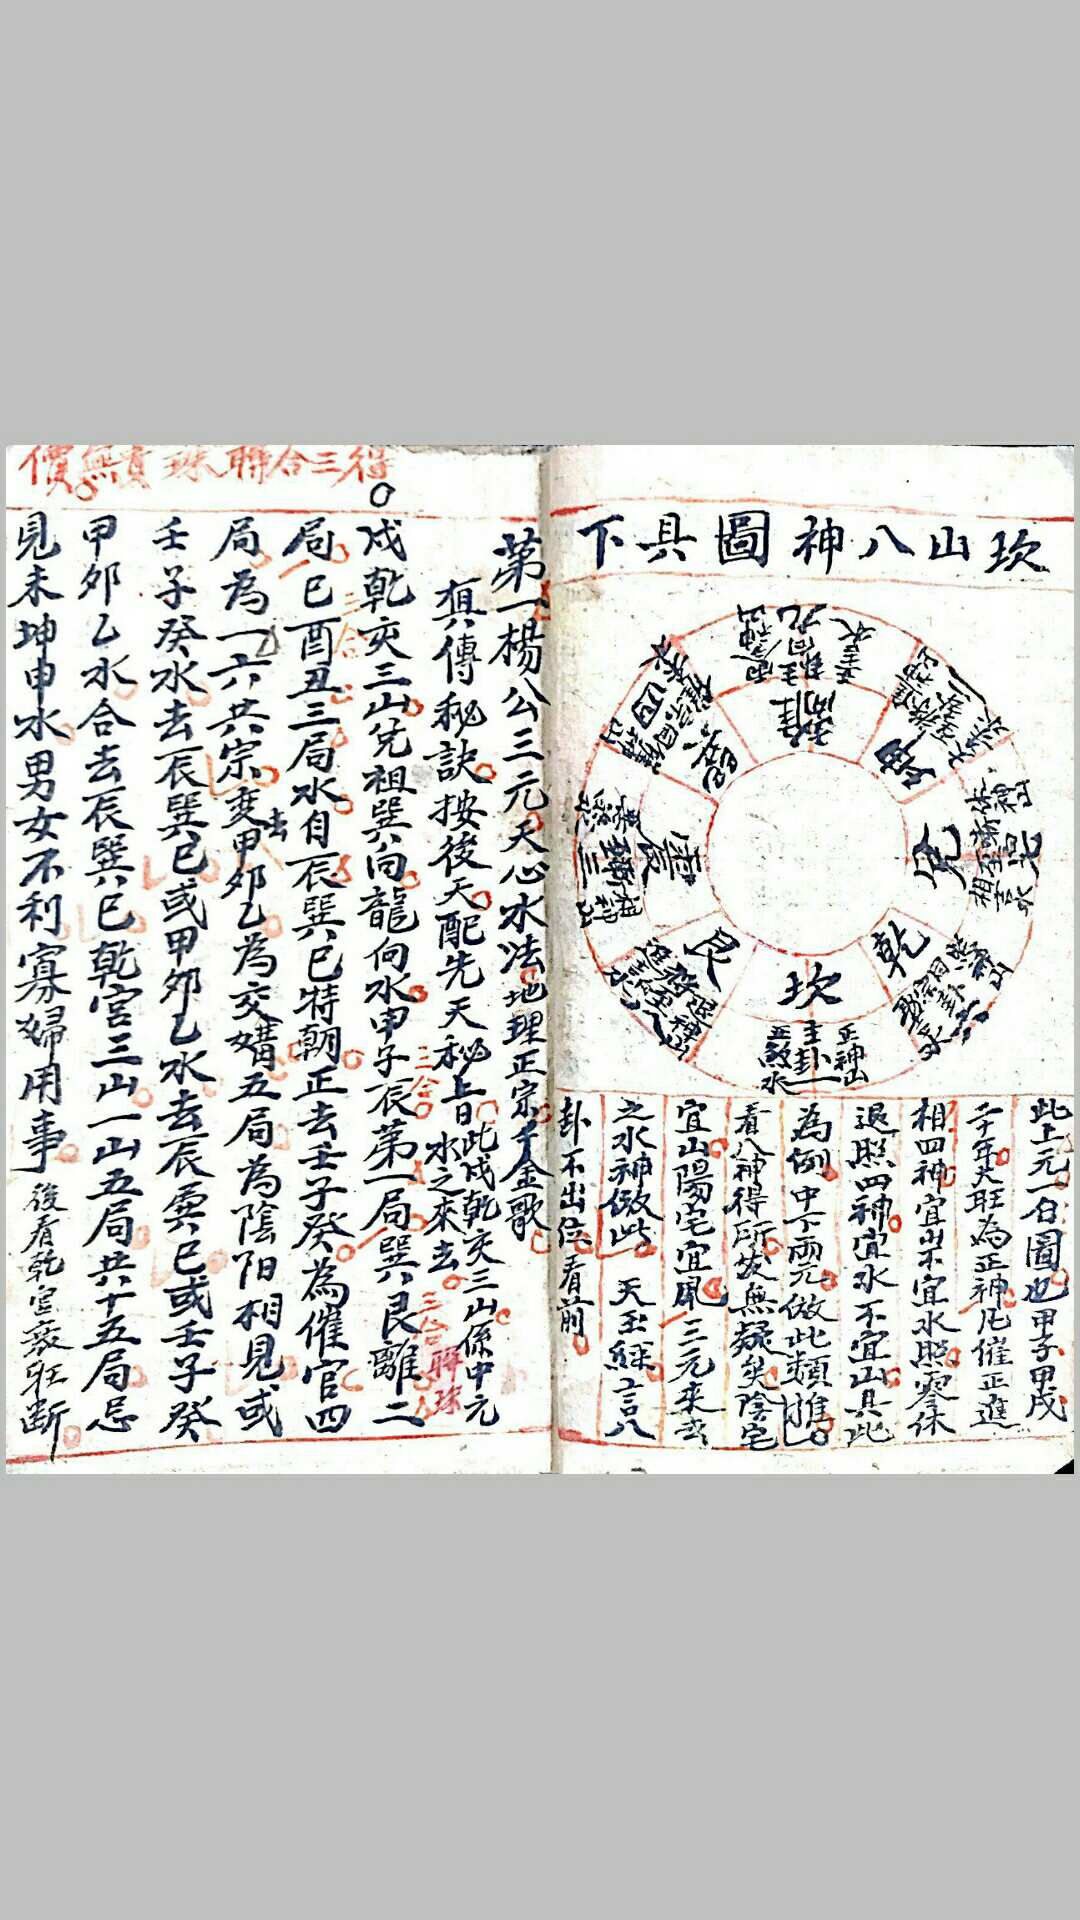 坎山八神圖具下
離
坤
兌
乾
坎
艮
震
巽
正神山
主卦一
正煞水
此上元一白圖也甲子甲戌
二十年大旺為正神凡催正進
相四神宜山不宜水照零休
退照四神宜水不宜山具此
為例中下兩元倣此類推
看八神得所发無疑矣陰宅
宜山陽宅宜風三元來去
之水神倣此 天玉經言八
卦不出位看前
得三合聯珠貴無價
第一楊公三元天心水法地理正宗千金歌
真傳秘訣按後天配先天秘旨此戌乾亥三山係中元
水之來去
三合聯珠
戌乾亥三山兌祖巽向龍向水申子辰第一局巽艮離二
三合
局巳酉丑三局水自辰巽巳特朝正去壬子癸為催官四
三合
局為一六共宗变甲夘乙為交媾五局為陰阳相見或
去
壬子癸水去辰巽巳或甲夘乙水去辰巽巳或壬子癸
甲夘乙水合去辰巽巳乾宮三山一山五局共十五局忌
見未坤申水男女不利寡婦用事 後看乾宮衰旺断